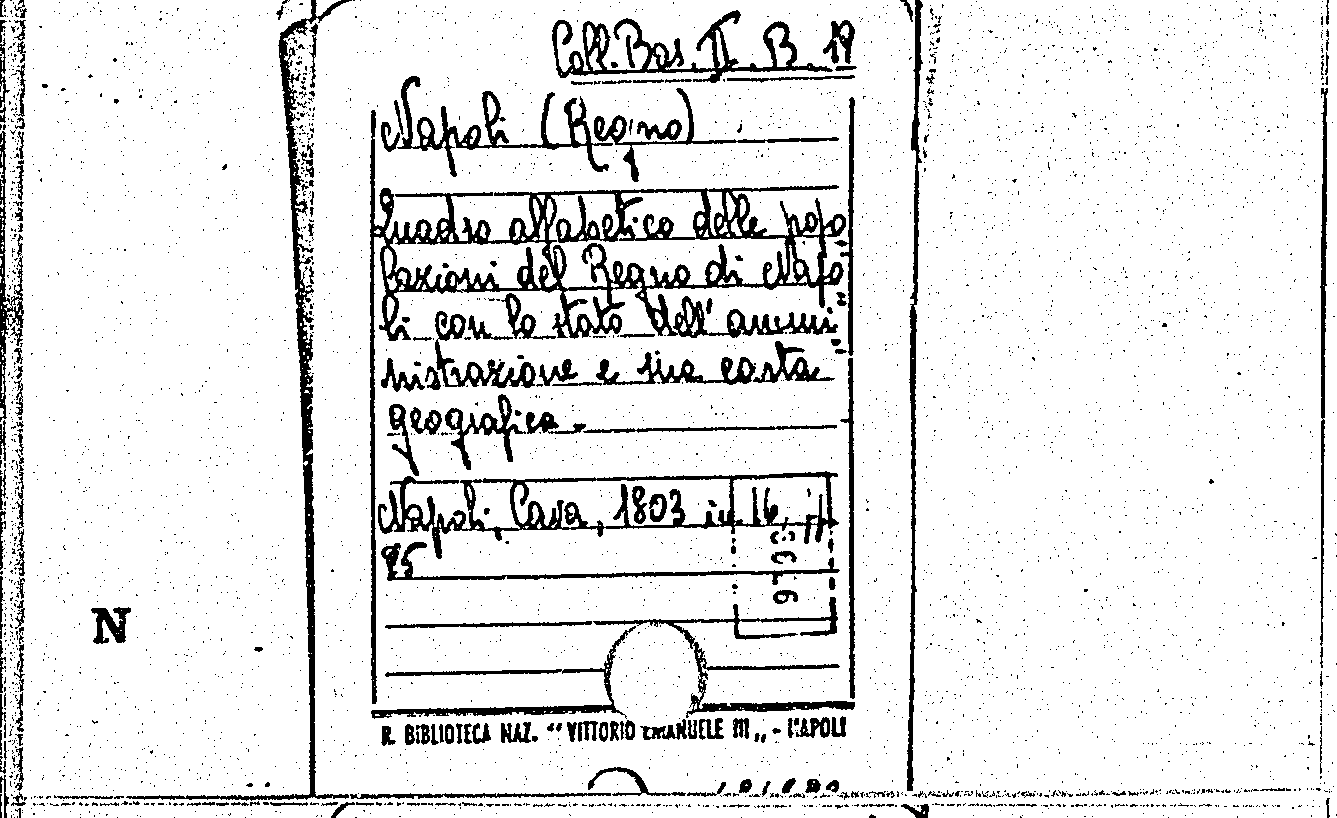 Coll. Bas. II. B. 19
Napoli (Regno)
Quadro alfabetico delle popo
lazioni del Regno di Napo"
li con lo stato dell'ammi"
nistrazione e sua carta
geografica.
Napoli, Cava, 1803 in 16, pp
95
N
R. BIBLIOTECA NAZ. "VITTORIO EMANUELE III„ - NAPOLI